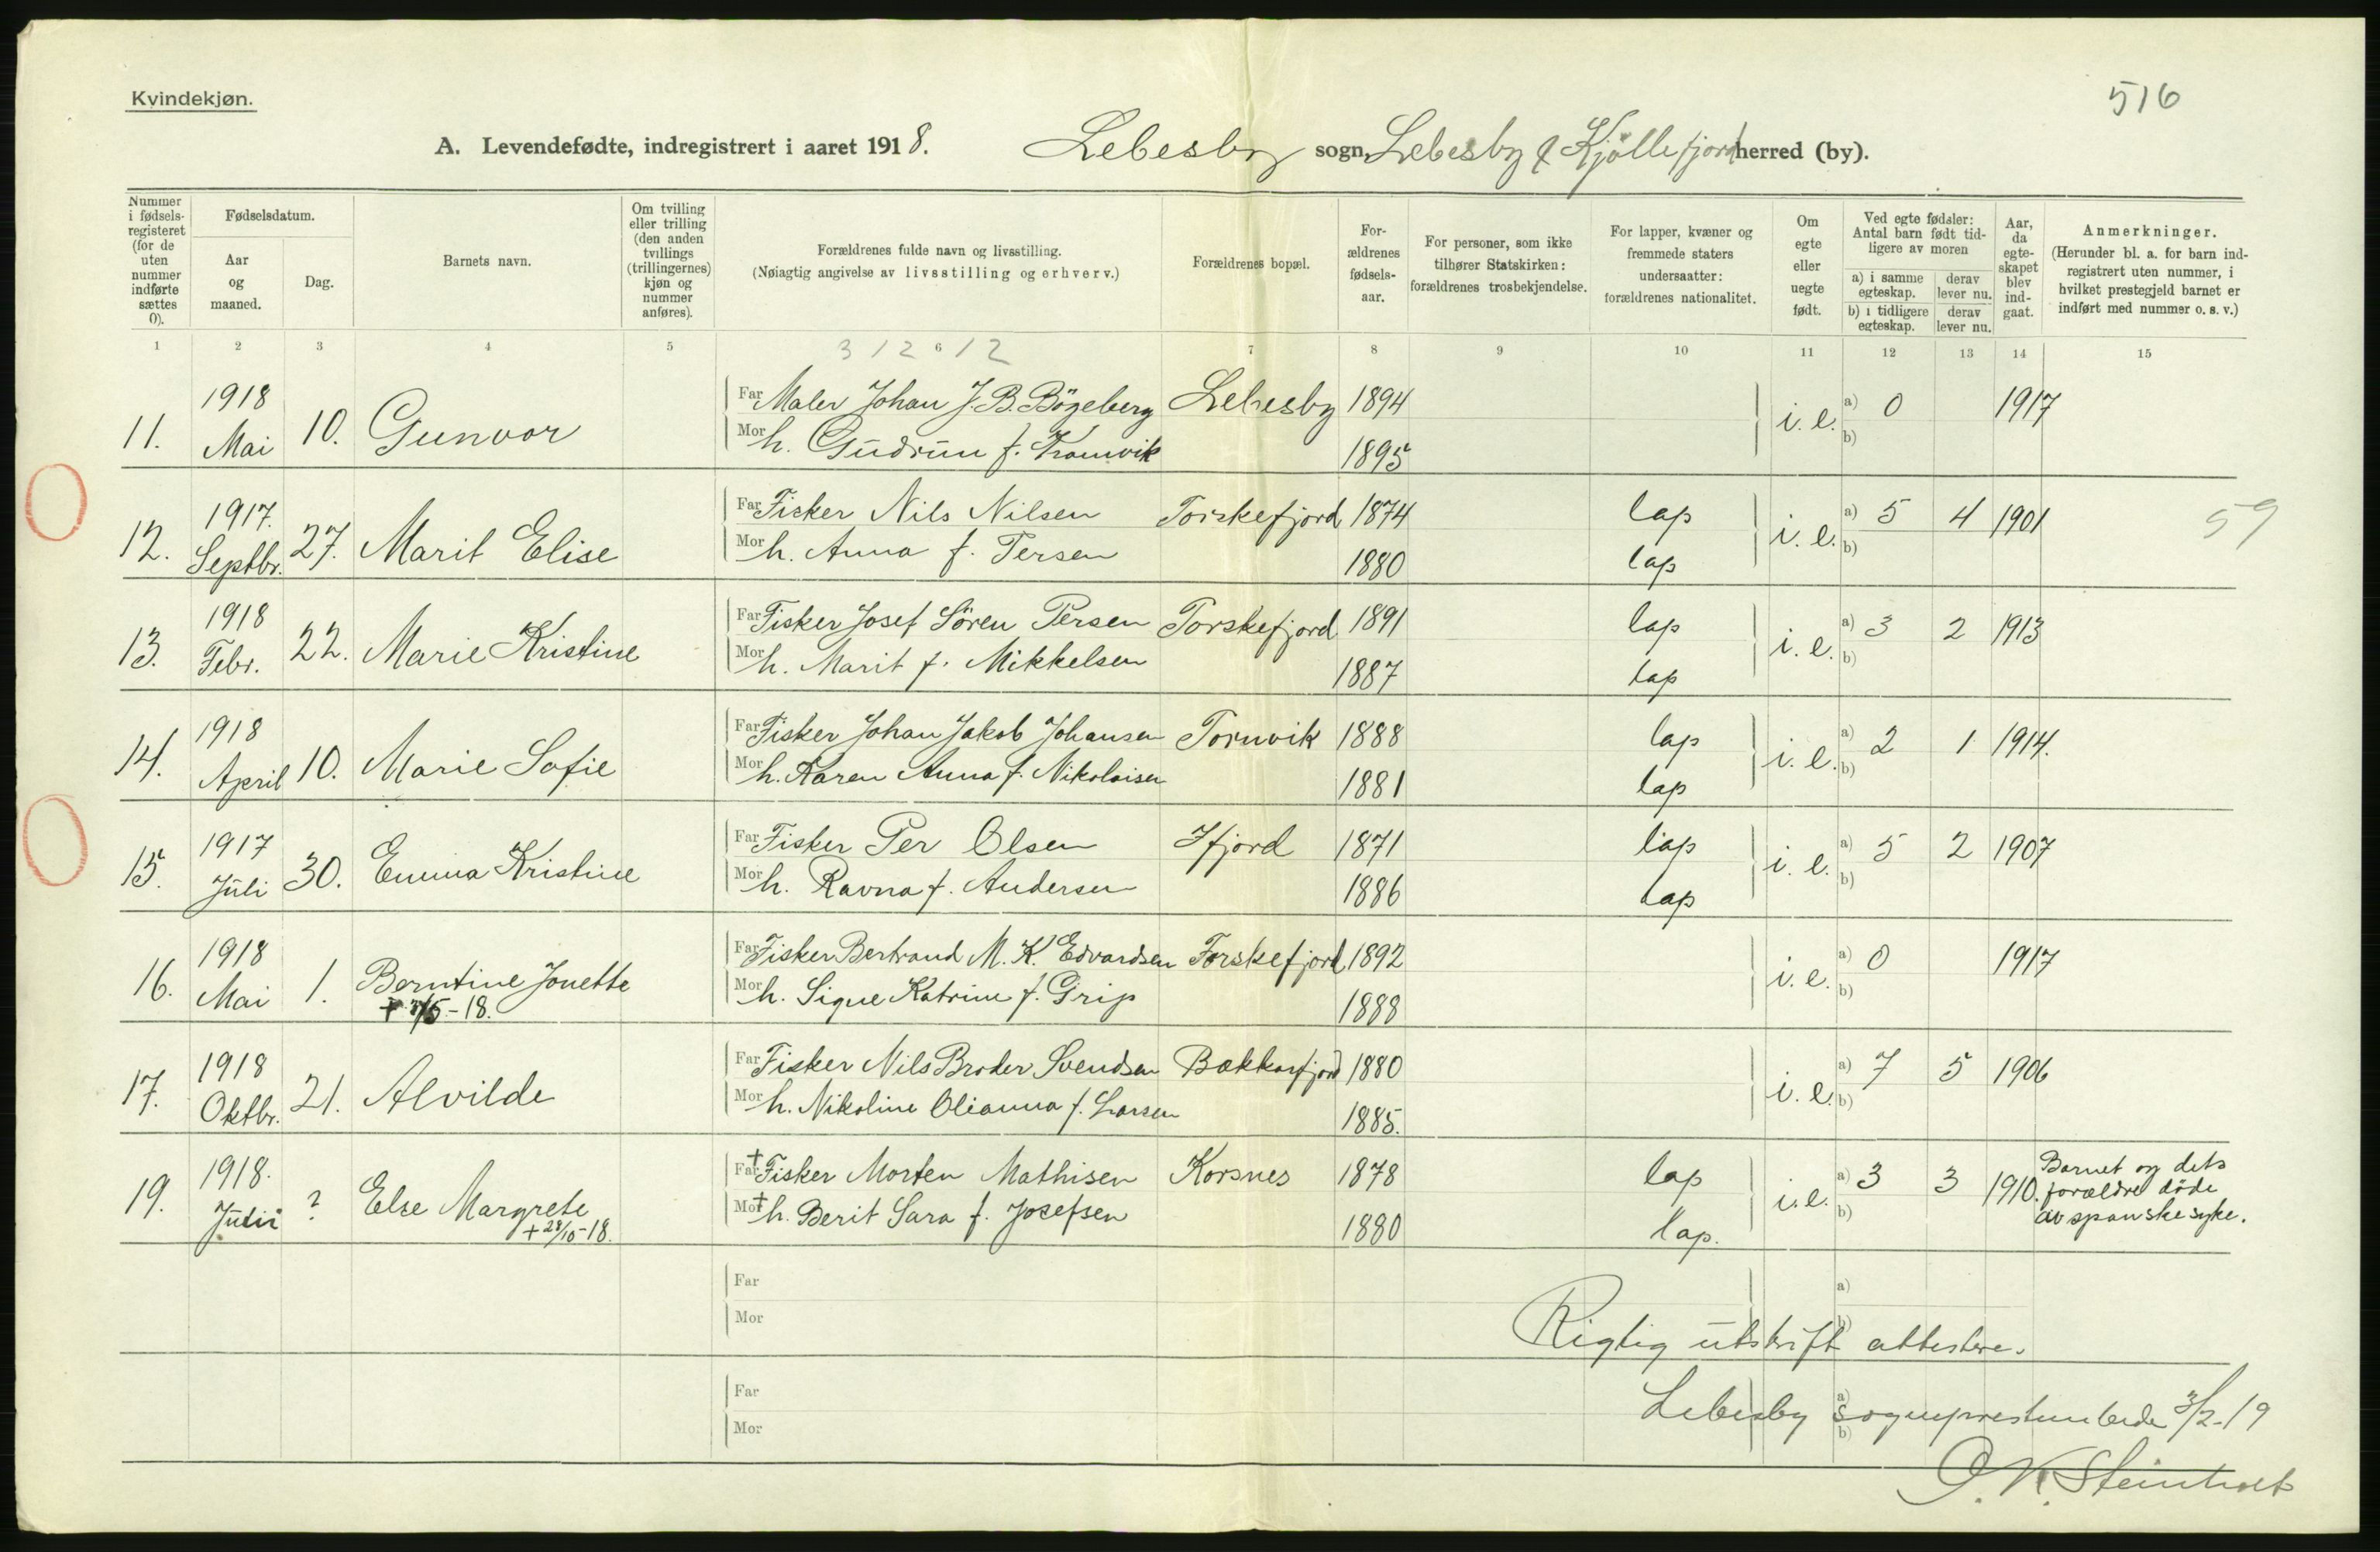 Kvindekjøn.
516
A. Levendefødte, indregistrert i aaret 1918. Lebesby sogn, Lebesby & Kjöllefjord herred (by).
Nummer i fødsels- registeret (for de uten nummer indførte sættes 0).
Fødselsdatum.
Aar og maaned.
Dag.
Barnets navn.
Om tvilling eller trilling (den anden tvillings (trillingernes) kjøn og nummer anføres).
Forældrenes fulde navn og livsstilling.
(Nøiagtig angivelse av livsstilling og erhverv.)
Forældrenes bopæl.
For- ældrenes fødsels- aar.
For personer, som ikke tilhører Statskirken: forældrenes trosbekjendelse.
For lapper, kvæner og fremmede staters undersaatter: forældrenes nationalitet.
Om egte eller uegte født.
Ved egte fødsler: Antal barn født tid- ligere av moren
a) i samme egteskap. derav lever nu.
b) i tidligere egteskap. derav lever nu.
Aar, da egte- skapet blev ind- gaat.
Anmerkninger.
(Herunder bl. a. for barn ind- registrert uten nummer, i hvilket prestegjeld barnet er indført med nummer o. s. v.)
1 2 3 4 5 6 7 8 9 10 11 12 13 14 15
3 12 12
11. 1918 Mai 10. Gunvor Far Maler Johan J. B. Bögeberg Lebesby 1894 i. e. a) 0 1917
Mor h. Gudrun f. Kramvik 1895 b)
12. 1917. Septbr. 27. Marit Elise Far Fisker Nils Nilsen Torskefjord 1874 lap i. e. a) 5 4 1901 59
Mor h. Anna f. Persen 1880 lap b)
13. 1918 Febr. 22. Marie Kristine Far Fisker Josef Sören Persen Torskefjord 1891 lap i. e. a) 3 2 1913
Mor h. Marit f. Mikkelsen 1887 lap b)
14. 1918 April 10. Marie Sofie Far Fisker Johan Jakob Johansen Tornvik 1888 lap i. e. a) 2 1 1914.
Mor h. Karen Anna f. Nikolaisen 1881 lap b)
15. 1917 Juli 30. Emma Kristine Far Fisker Per Olsen Ifjord 1871 lap i. e. a) 5 2 1907
Mor h. Ravna f. Andersen 1886 lap b)
16. 1918 Mai 1. Berntine Jonette Far Fisker Bertrand M. K. Edvardsen Torskefjord 1892 i. e. a) 0 1917
/5-18. Mor h. Signe Katrine f. Grip 1888 b)
17. 1918 Oktbr. 21. Alvilde Far Fisker Nils Broder Svendsen Bekkarfjord 1880 i. e. a) 7 5 1906
Mor h. Nikoline Olianna f. Larsen 1885. b)
19. 1918. Juli ? Else Margrete Far + Fisker Morten Mathisen Korsnes 1878 lap i. e. a) 3 3 1910. Barnet og dets
+ 28/10-18. Mor + h. Berit Sara f. Josefsen 1880 lap. b) forældre döde
av spanske syke.
Far a)
Mor b)
Rigtig utskrift attesteres.
Far a)
Mor b)
Lebesby sogneprestembede 3/2-19
O. K. Steinholt